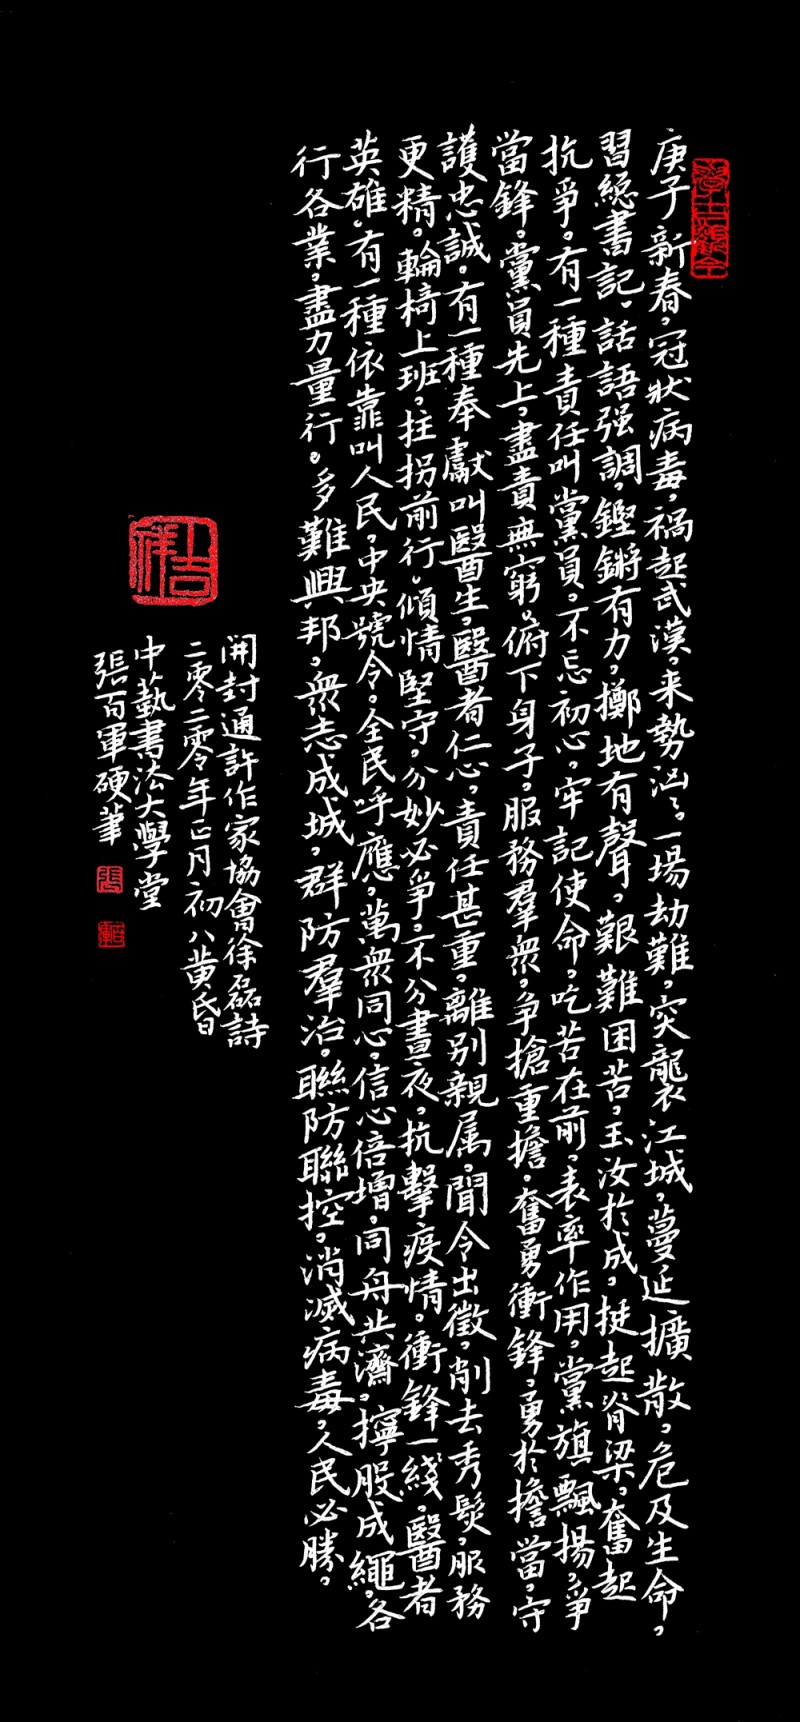 庚子新春，冠狀病毒，禍起武漢，来勢汹々。一場劫難，突襲江城，蔓延擴散，危及生命，
習總書記，話語强調，鏗鏘有力，擲地有聲，艱難困苦，玉汝於成，挺起脊梁，奮起
抗爭。有一種責任叫黨員，不忘初心，牢記使命，吃苦在前，表率作用，黨旗飄揚，爭
當鋒，黨員先上，盡責無窮。俯下身子，服務羣衆，争搶重擔，奮勇衝鋒，勇於擔當，守
護忠誠。有一種奉獻叫醫生，醫者仁心，責任甚重，離别親属，聞令出徵，削去秀髮，服務
更精。輪椅上班，拄拐前行。傾情堅守，分妙必爭，不分晝夜，抗擊疫情。衝鋒一綫，醫者
英雄。有一種依靠叫人民，中央號令。全民呼應，萬衆同心，信心倍增，同舟共濟，擰股成繩，各
行各業，盡力量行。多難興邦，衆志成城，群防羣治，聯防聯控，消滅病毒，人民必勝。
開封通許作家協會徐磊詩
二零二零年正月初八黄昏
中藝書法大學堂
張百軍硬筆
吉祥
張